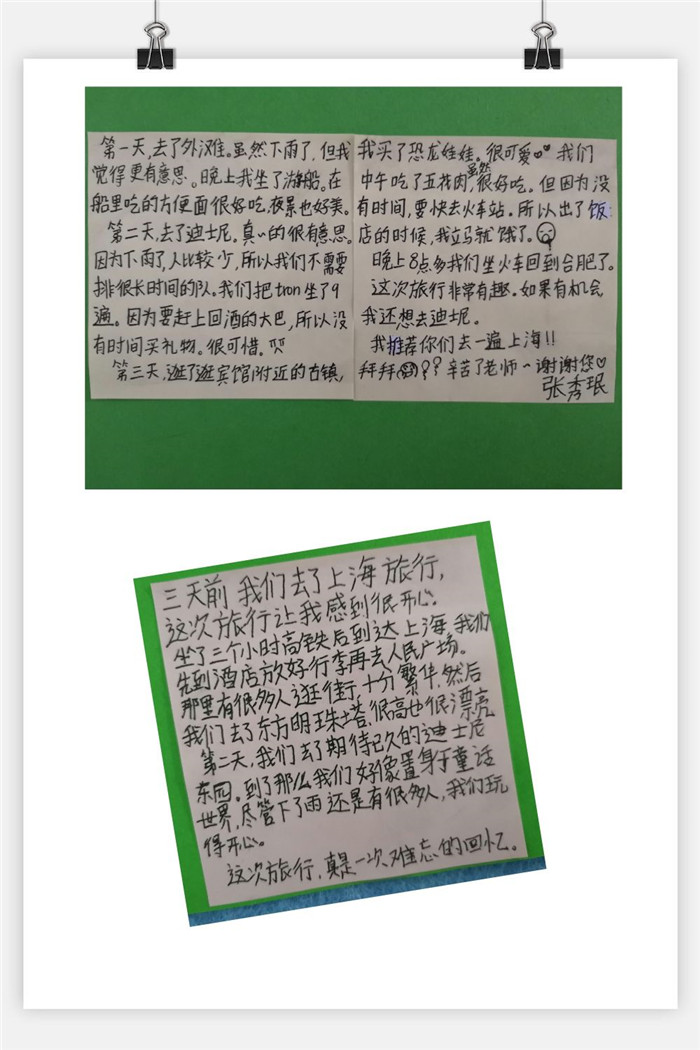 第一天,去了外滩。虽然下雨了,但我
觉得更有意思。晚上我坐了游船。在
船里吃的方便面很好吃,夜景也好美。
第二天,去了迪士尼。真的很有意思。
因为下雨了,人比较少,所以我们不需要
排很长时间的队。我们把tron坐了9
遍。因为要赶上回酒的大巴,所以没
有时间买礼物。很可惜。
第三天,逛了逛宾馆附近的古镇,
我买了恐龙娃娃。很可爱♥♥ 我们
中午吃了五花肉,虽然很好吃。但因为没
有时间,要快去火车站。所以出了饭
店的时候,我立马就饿了。
晚上8点多我们坐火车回到合肥了。
这次旅行非常有趣。如果有机会
我还想去迪士尼。
我推荐你们去一遍上海!!
拜拜 辛苦了老师~谢谢您♡
张秀珉
三天前 我们去了上海旅行,
这次旅行让我感到很开心。
坐了三个小时高铁后到达上海,我们
先到酒店放好行李再去人民广场。
那里有很多人逛街,十分繁华,然后
我们去了东方明珠塔,很高也很漂亮
第二天,我们去了期待已久的迪士尼
东园。到了那么我们好像置身于童话
世界,尽管下了雨还是有很多人,我们玩
得开心。
这次旅行,真是一次难忘的回忆。